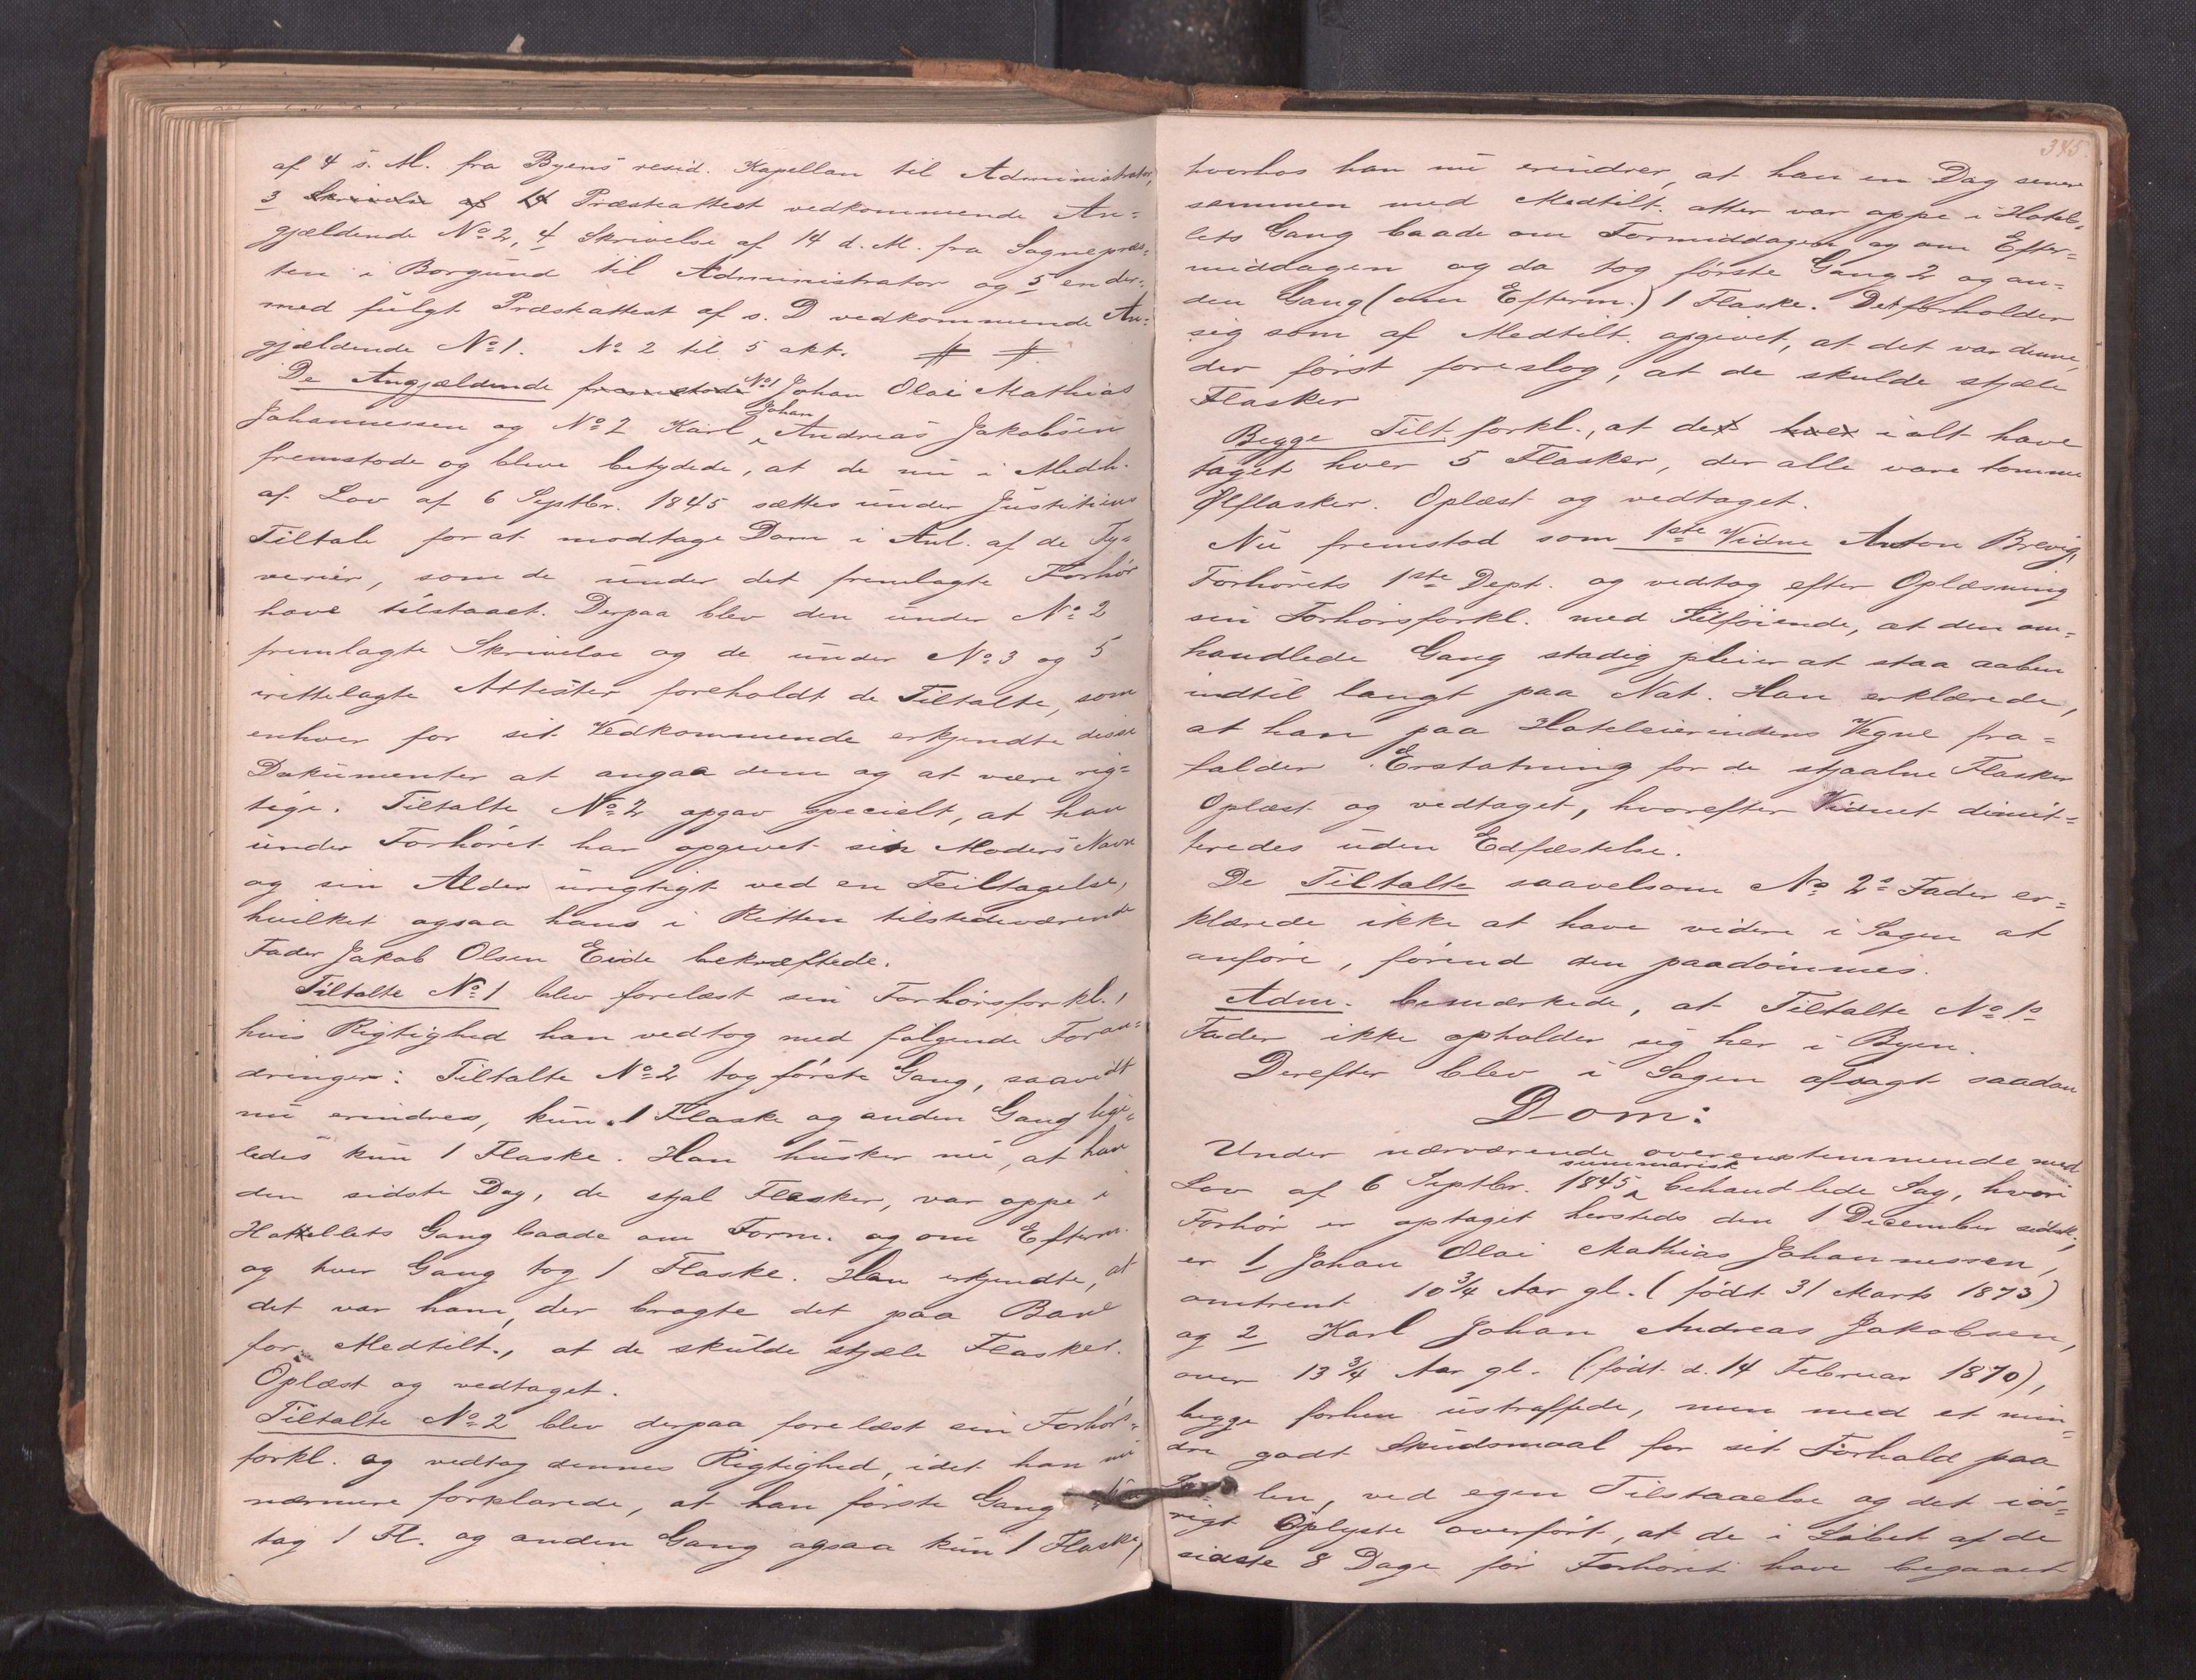 af 4 s. M. fra Byens resid. Kapellan til Administrator,
3 Skrivelse af 14 Præsteattest vedkommende An=
gjældende No 2, 4 Skrivelse af 14 d. M. fra Sognepræs=
ten i Borgund til Administrator og 5 en der=
med fulgt Præsteattest af s. D vedkommende An=
gjældende No 1. No 2 til 5 akt.
De Angjældende fremstode No 1 Johan Olai Mathias
Johannessen og No 2 Karl Johan Andreas Jakobsen
fremstode og bleve betydede, at de nu i Medh.
af Lov af 6 Septbr. 1845 sættes under Justitiens
Tiltale for at modtage Dom i Anl. af de Ty=
verier, som de under det fremlagte Forhør
have tilstaaet. Derpaa blev den under No 2
fremlagte Skrivelse og de under No 3 og 5
irettelagte Attester foreholdt de Tiltalte, som
enhver for sit Vedkommende erkjendte disse
Dokumenter at angaa dem og at være rig=
tige. Tiltalte No 2 opgav specielt, at han
under Forhøret har opgivet sin Moders Navn
og sin Alder urigtigt ved en Feiltagelse,
hvilket ogsaa hans i Retten tilstedeværende
Fader Jakob Olsen Eide bekræftede.
Tiltalte No 1 blev forelæst sin Forhørsforkl.,
hvis Rigtighed han vedtog med følgende Foran=
dringer: Tiltalte No 2 tog første Gang, saavidt
nu erindres, kun 1 Flaske og anden Gang lige=
ledes kun 1 Flaske. Han husker nu, at han
den sidste Dag, de stjal Flasker, var oppe i
Hotellets Gang baade om Form. og om Efterm.
og hver Gang tog 1 Flaske. Han erkjendte, at
det var ham, der bragte det paa Bane
for Medtilt., at de skulde stjæle Flasker.
Oplæst og vedtaget.
Tiltalte No 2 blev derpaa forelæst sin Forhørs=
forkl. og vedtog dennes Rigtighed, idet han nu
nærmere forklarede, at han første Gang
tog 1 Fl. og anden Gang ogsaa kun 1 Flaske,
345.
hvorhos han nu erindrer, at han en Dag senere
sammen med Medtilt. atter var oppe i Hotel=
lets Gang baade om Formiddagen og om Efter=
middagen og da tog første Gang 2 og an=
den Gang (om Efterm.) 1 Flaske. Det forholder
sig som af Medtilt. opgivet, at det var denne,
der først foreslog, at de skulde stjæle
Flasker
Begge Tilt forkl., at de hver ialt have
taget hver 5 Flasker, der alle vare tomme
Ølflasker. Oplæst og vedtaget.
Nu fremstod som 1ste Vidne Anton Brevig,
Forhørets 1ste Dept. og vedtog efter Oplæsning
sin Forhørsforkl. med Tilføiende, at den om=
handlede Gang stadig pleier at staa aaben
indtil langt paa Nat. Han erklærede,
at han paa Hoteleierindens Vegne fra=
falder Erstatning for de stjaalne Flasker
Oplæst og vedtaget, hvorefter Vidnet dimit=
teredes uden Edfæstelse.
De Tiltalte saavelsom No 2s Fader er=
klærede ikke at have videre i Sagen at
anføre, førend den paadømmes.
Adm. bemærkede, at Tiltalte No 1s
Fader ikke opholder sig her i Byen.
Derefter blev i Sagen afsagt saadan
Dom:
Under nærværende overensstemmende med
Lov af 6 Septbr. 1845 summarisk behandlede Sag, hvori
Forhør er optaget hersteds den 1 December sidstl.,
er 1, Johan Olai Mathias Johannessen,
omtrent 10 3/4 Aar gl. (født 31 Marts 1873)
og 2 Karl Johan Andreas Jakobsen,
over 13 3/4 Aar gl. (født d. 14 Februar 1870),
begge forhen ustraffede, men med et min=
dre godt Skudsmaal for sit Forhold paa
ved egen Tilstaaelse og det iøv=
rigt Oplyste overført, at de i Løbet af de
sidste 8 Dage før Forhøret have begaaet